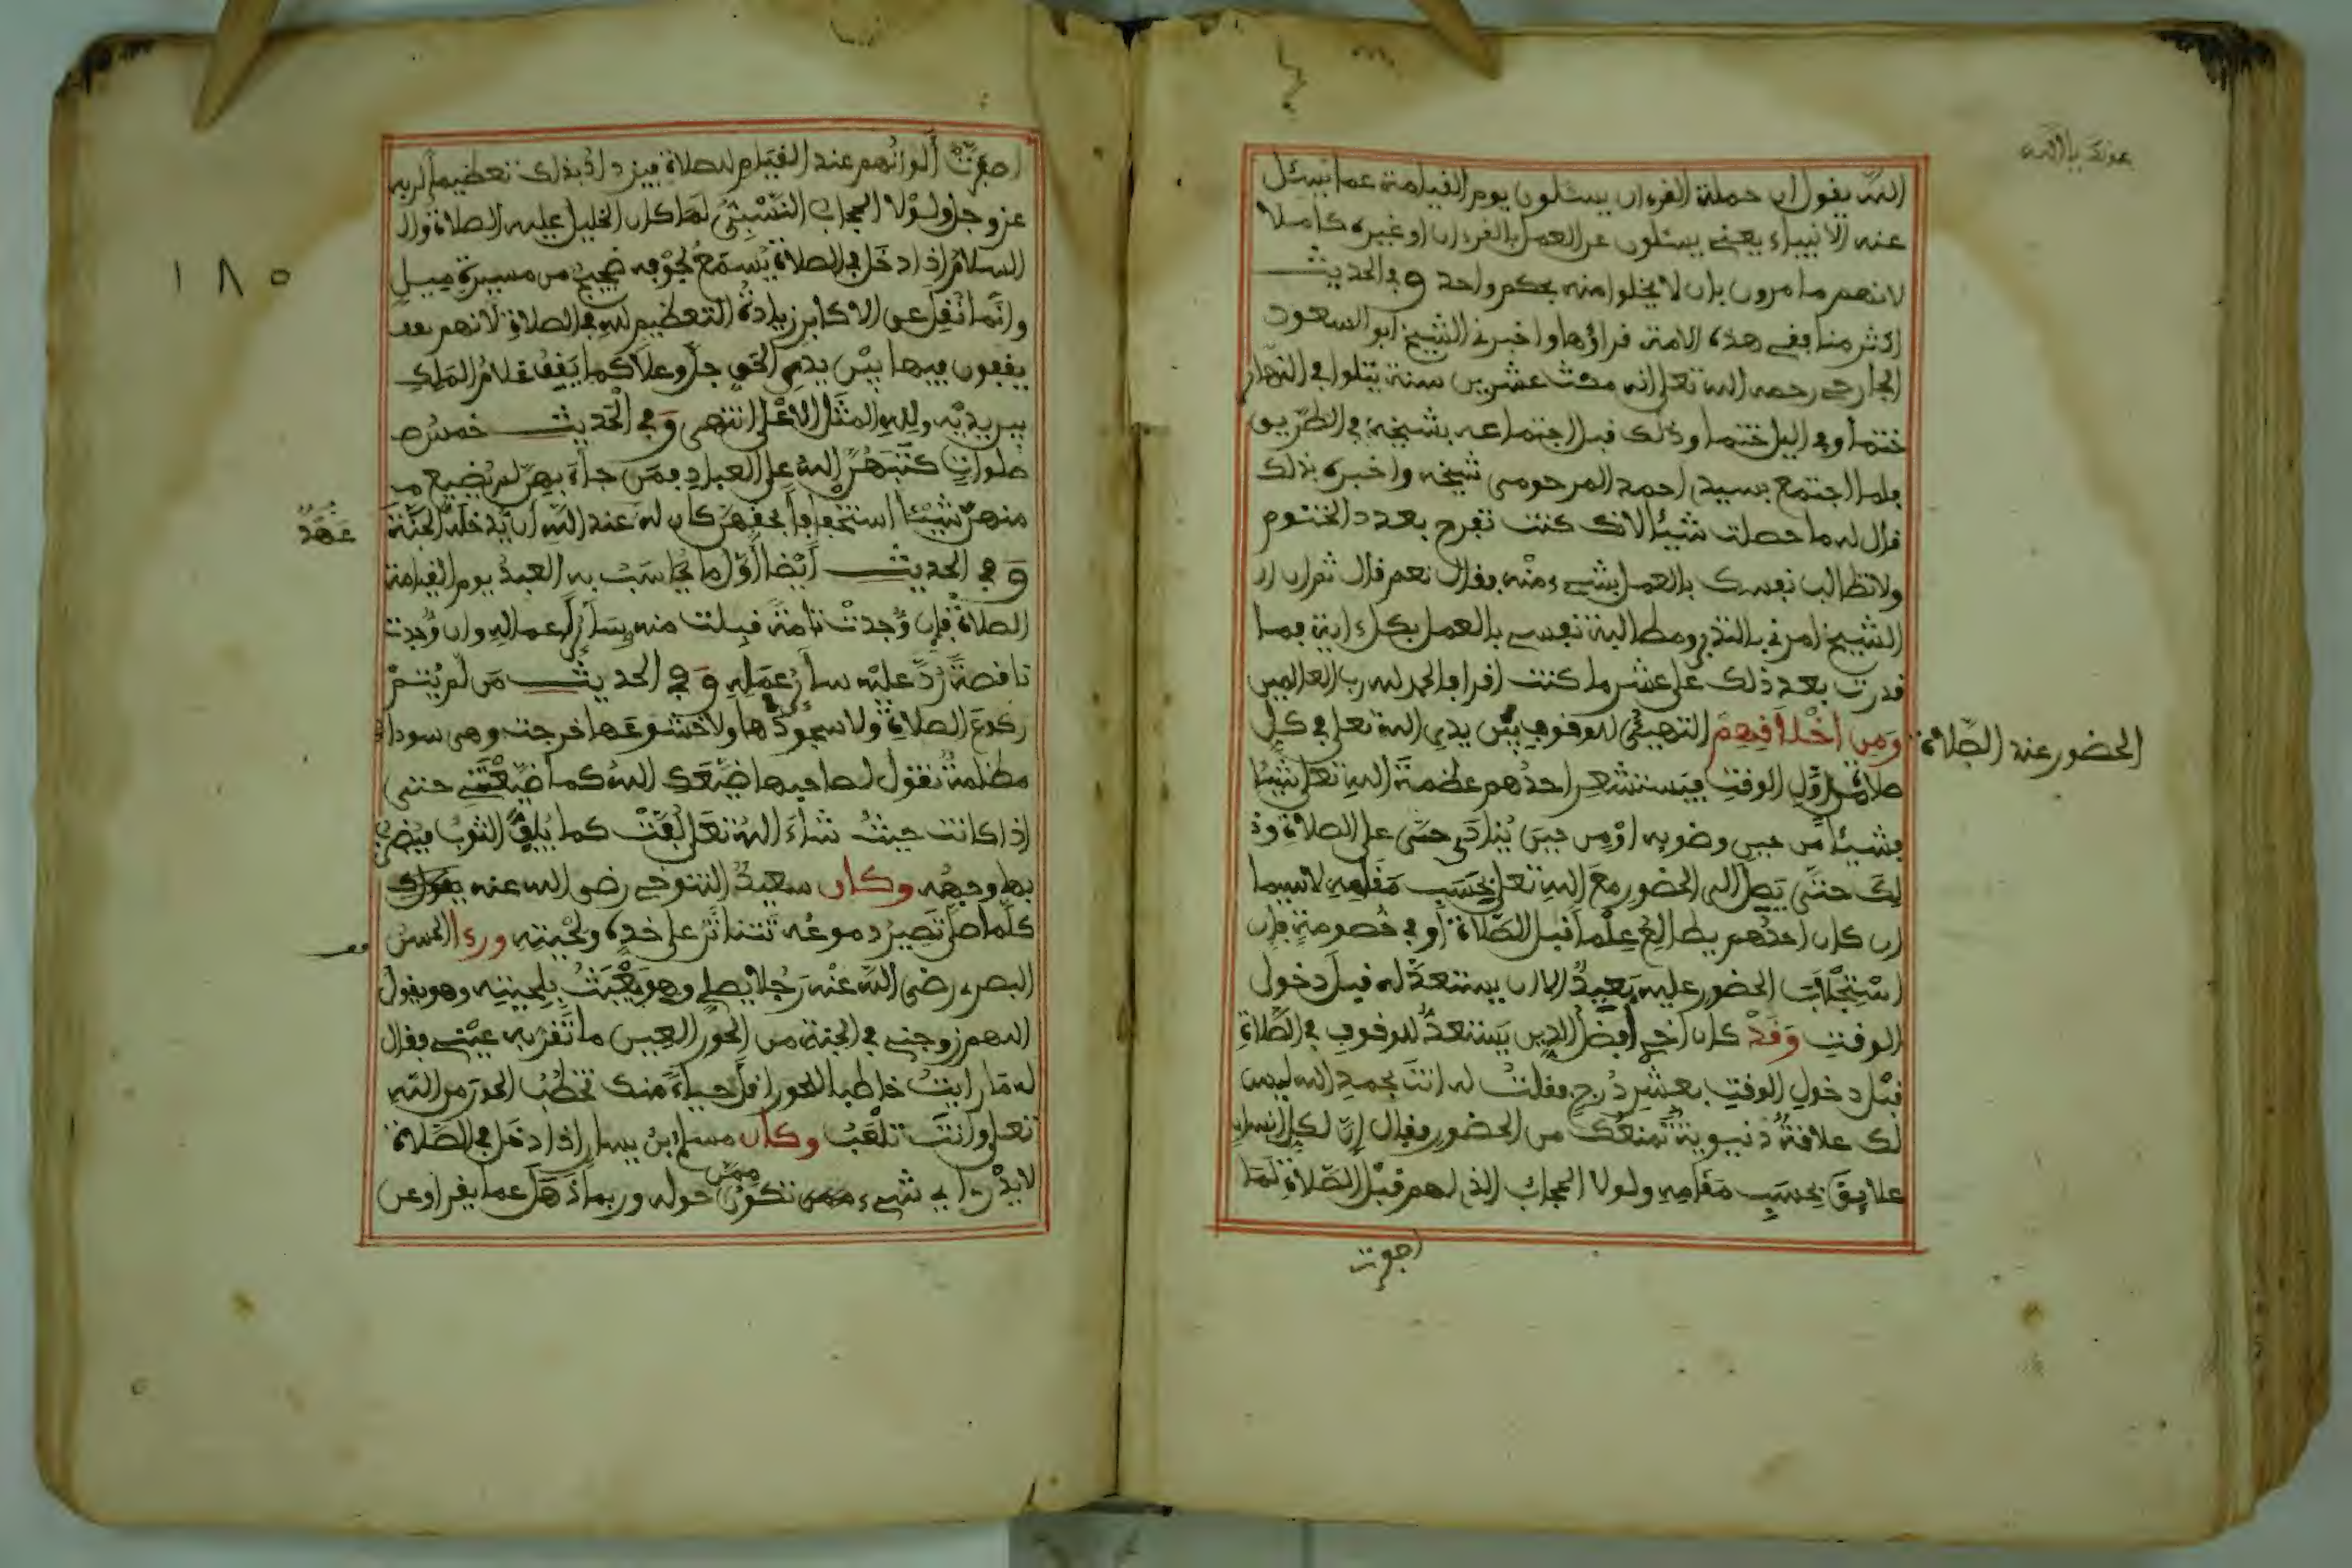 عونك يا الله
الله يقول ان حملة القرءان يسئلون يوم القيامة عما تسئل
عنه الانبياء يعني يسئلون عن العمل بالقرءان او غيره كاملا
لانهم مامرون بان لا يخلوا منه بحكم واحد وفي الحديث
اكثر منافقي هذه الامة قراؤها واخبرني الشيخ ابو السعود
الجارحي رحمه الله تعلى انه مكث عشرين سنة يتلوا في النهار
ختما وفي اليل ختما وذلك قبل اجتماعه بشيخه في الطريق
فلما اجتمع بسيدي احمد المرحومي شيخه واخبره بذلك
قال له ما حصلت شيئا لانك كنت تفرح بعدد الختوم
ولا تطالب نفسك بالعمل بشيء منه فقال نعم قال ثم ان
الشيخ امرني بالتدبر ومطالبة نفسي بالعمل بكل ءاية فما
قدرت بعد ذلك على عشر ما كنت اقرا والحمد لله رب العالمين
وَمِن اخْلَاقِهِمْ التهيئ للوقوف بين يدي الله تعلى في كل
الحضور عند الصلاة
صلاة من اول الوقت فيستشعر احدهم عظمة الله تعلى شيئا
فشيئا من حين وضويه او من حين ينادى حي على الصلاة وذ
لك حتى يصل الى الحضور مع الله تعلى بحسب مقامه لاسيما
ان كان احدهم يطالع علما قبل الصلاة او في خصومة فان
استجلاب الحضور عليه بعيد الا ان يستعد له قبل دخول
الوقت وَقَدْ كان اخي افضل الدين يستعد للوقوف في الصلاة
قبل دخول الوقت بعشر درج فقلت له انت بحمد الله ليس
لك علاقة دنيوية تمنعك من الحضور فقال ان لكل انسان
علايق بحسب مقامه ولولا الحجاب الذي لهم قبل الصلاة لما
اصفرت
١٨٥
اصفرت ألوانهم عند القيام للصلاة فيزداد بذلك تعظيما لربه
عز وجل ولولا الحجاب النسبي لما كان الخليل عليه الصلاة وال
السلام اذا دخل في الصلاة يسمع لجوفه ضجيج من مسيرة ميل
وانما نقل عن الاكابر زيادة التعظيم لله في الصلاة لانهم
يقفون فيها بين يدي الحق جل وعلا كما يقف غلام الملك
بين يديه ولله المثل الاعلى انتهى وَفي الْحَديث خمس ص
صلوات كتبهن الله على العباد فمن جاء بهن لم يضيع م
منهن شيئا استخفافا بحقهن كان له عند الله أن يدخله الجنة
عَهْدٌ
وَفي الحديث أيضا أول ما يحاسب به العبد يوم القيامة
الصلاة فإن وُجدت تامة قبلت منه وسائر اعماله وان وُجدت
ناقصة رُدّ عليه سائر عمله وَفي الحديث من لم يُتم
ركوع الصلاة ولا سجودها ولا خشوعها خرجت وهي سوداء
مظلمة تقول لصاحبها ضيعك الله كما ضيعتني حتى
اذا كانت حيث شاء الله تعلى لُفّت كما يُلف الثوب فيضرب
بها وجهه وكان سعيد التنوخي رضي الله عنه يقول
كلما صلى تصير دموعه تتناثر على خده ولحيته ورءا الحسن
البصري رضي الله عنه رجلا يصلي وهو يعبث بلحيته وهو يقول
اللهم زوجني في الجنة من الحور العين ما تقر به عيني فقال
له ما رايت خاطبا للحور اقل حياء منك تخطب الحور من الله
تعلى وانت تلعب وكان مسلم بن يسار اذا دخل في الصلاة
لا يدري اي شيء ممن تكون حوله وربما ذهل عما يقرا وعن